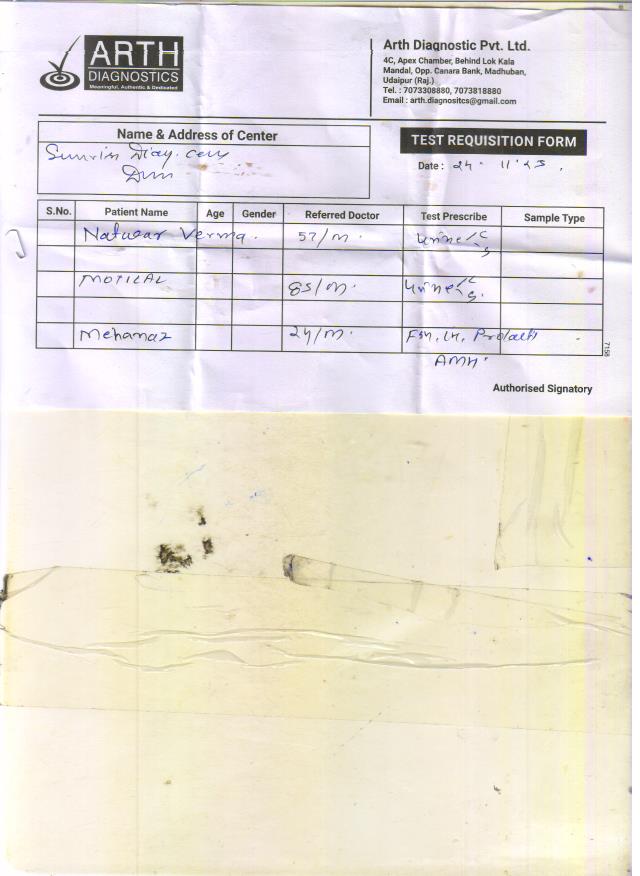 ARTH
DIAGNOSTICS
Meaningful, Authentic & Dedicated
Arth Diagnostic Pvt. Ltd.
4C, Apex Chamber, Behind Lok Kala
Mandal, Opp. Canara Bank, Madhuban,
Udaipur (Raj.)
Tel. : 7073308880, 7073818880
Email : arth.diagnositcs@gmail.com
Name & Address of Center
TEST REQUISITION FORM
Date :
S.No. Patient Name Age Gender Referred Doctor Test Prescribe Sample Type
Natwar Verma. 57/M. Urine C/S
MOTILAL 85/M. Urine C/S.
Mehanaz 24/M. FSH, LH,
AMH.
7158
Authorised Signatory